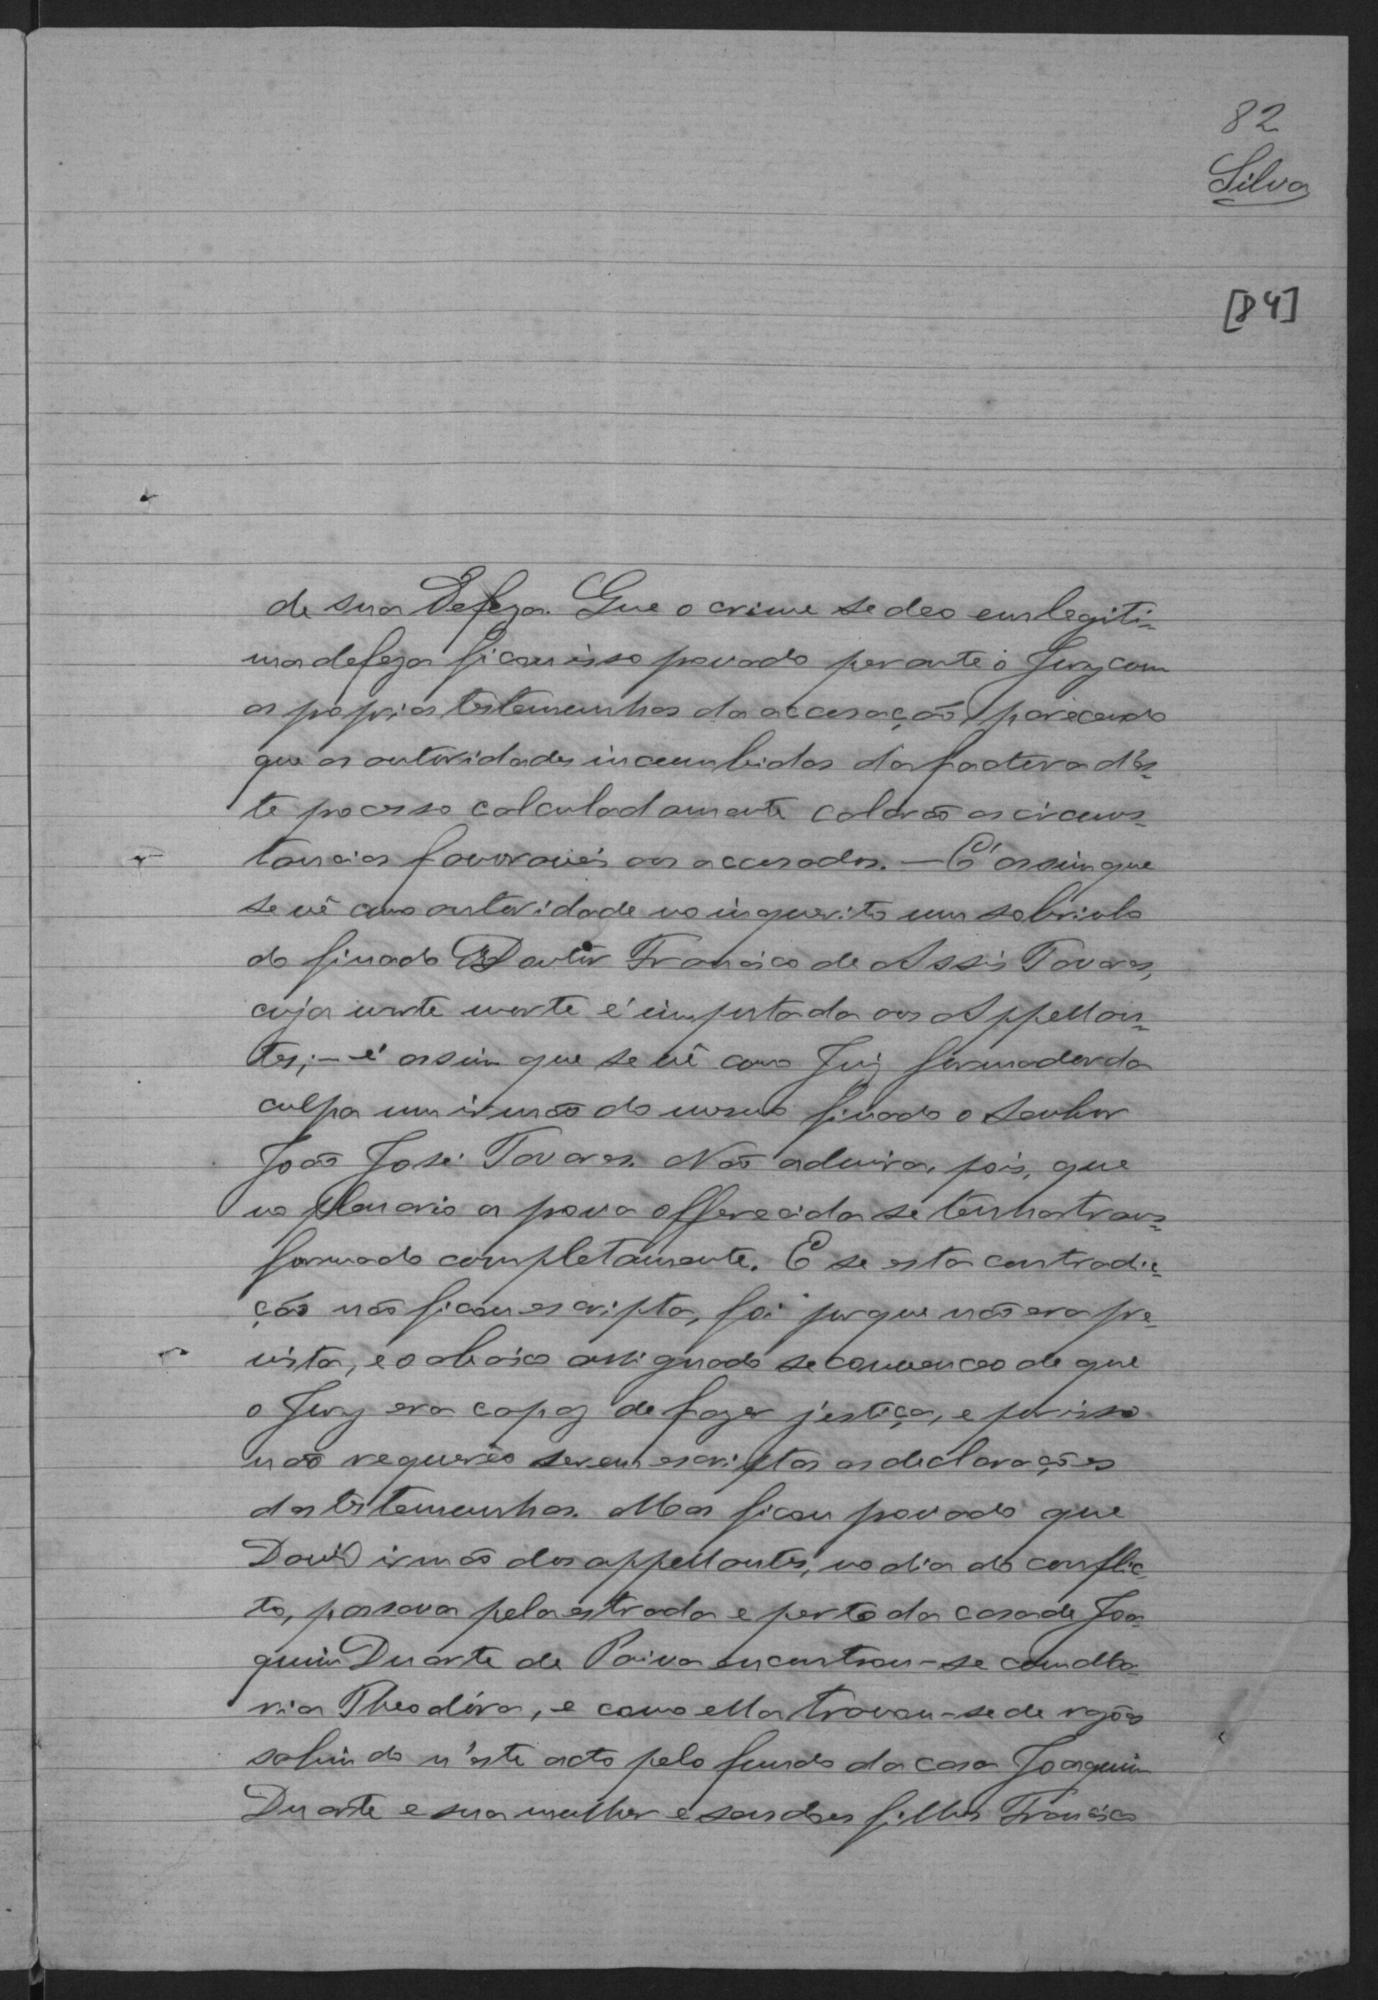 82
Silva
[84]
de sua Defeza. Que o crime se deo em legiti-
ma defeza ficou isso provado perante o Jury com
as proprias testemunhas da accusação, parecendo
que as autoridades incumbidas da factura d'es-
te processo calculadamente calarão as circuns-
tancias favoraveis aos accusados. — É assim que
se vê como autoridade no inquerito um sobrinho
do finado Doutor Francisco de Assis Tavares,
cuja morte morte é imputada aos Appellan-
tes; – é assim que se vê como Juiz formador da
culpa um irmão do mesmo finado o Senhor
João José Tavares. Não admira, pois, que
no plenario a prova offerecida se tenha trans-
formado completamente. E se esta contradic-
ção não ficou escripta, foi porque não era pre-
vista, e o abaixo assignado se convenceo de que
o Jury era capaz de fazer justiça, e por isso
não requereo serem escriptas as declarações
das testemunhas. Mas ficou provado que
David irmão dos appellantes, no dia do conflic-
to, passava pela estrada e perto da casa de Joa-
quim Duarte de Paiva encontrou-se com Ma-
ria Theodóra, e como ella travou-se de rasões
sahindo n'este acto pelo fundo da casa Joaquim
Duarte e sua mulher e seus dous filhos Francisco